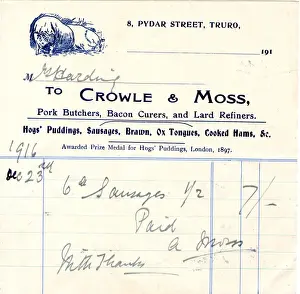 8, PYDAR STREET, TRURO,
191
M Harding
To CROWLE & MOSS,
Pork Butchers, Bacon Curers, and Lard Refiners.
Hogs' Puddings, Sausages, Brawn, Ox Tongues, Cooked Hams, &c.
Awarded Prize Medal for Hogs' Puddings, London, 1897.
1916
Dec 23rd 6 Sausages 1/2 7/-
Paid
A Moss
With Thanks